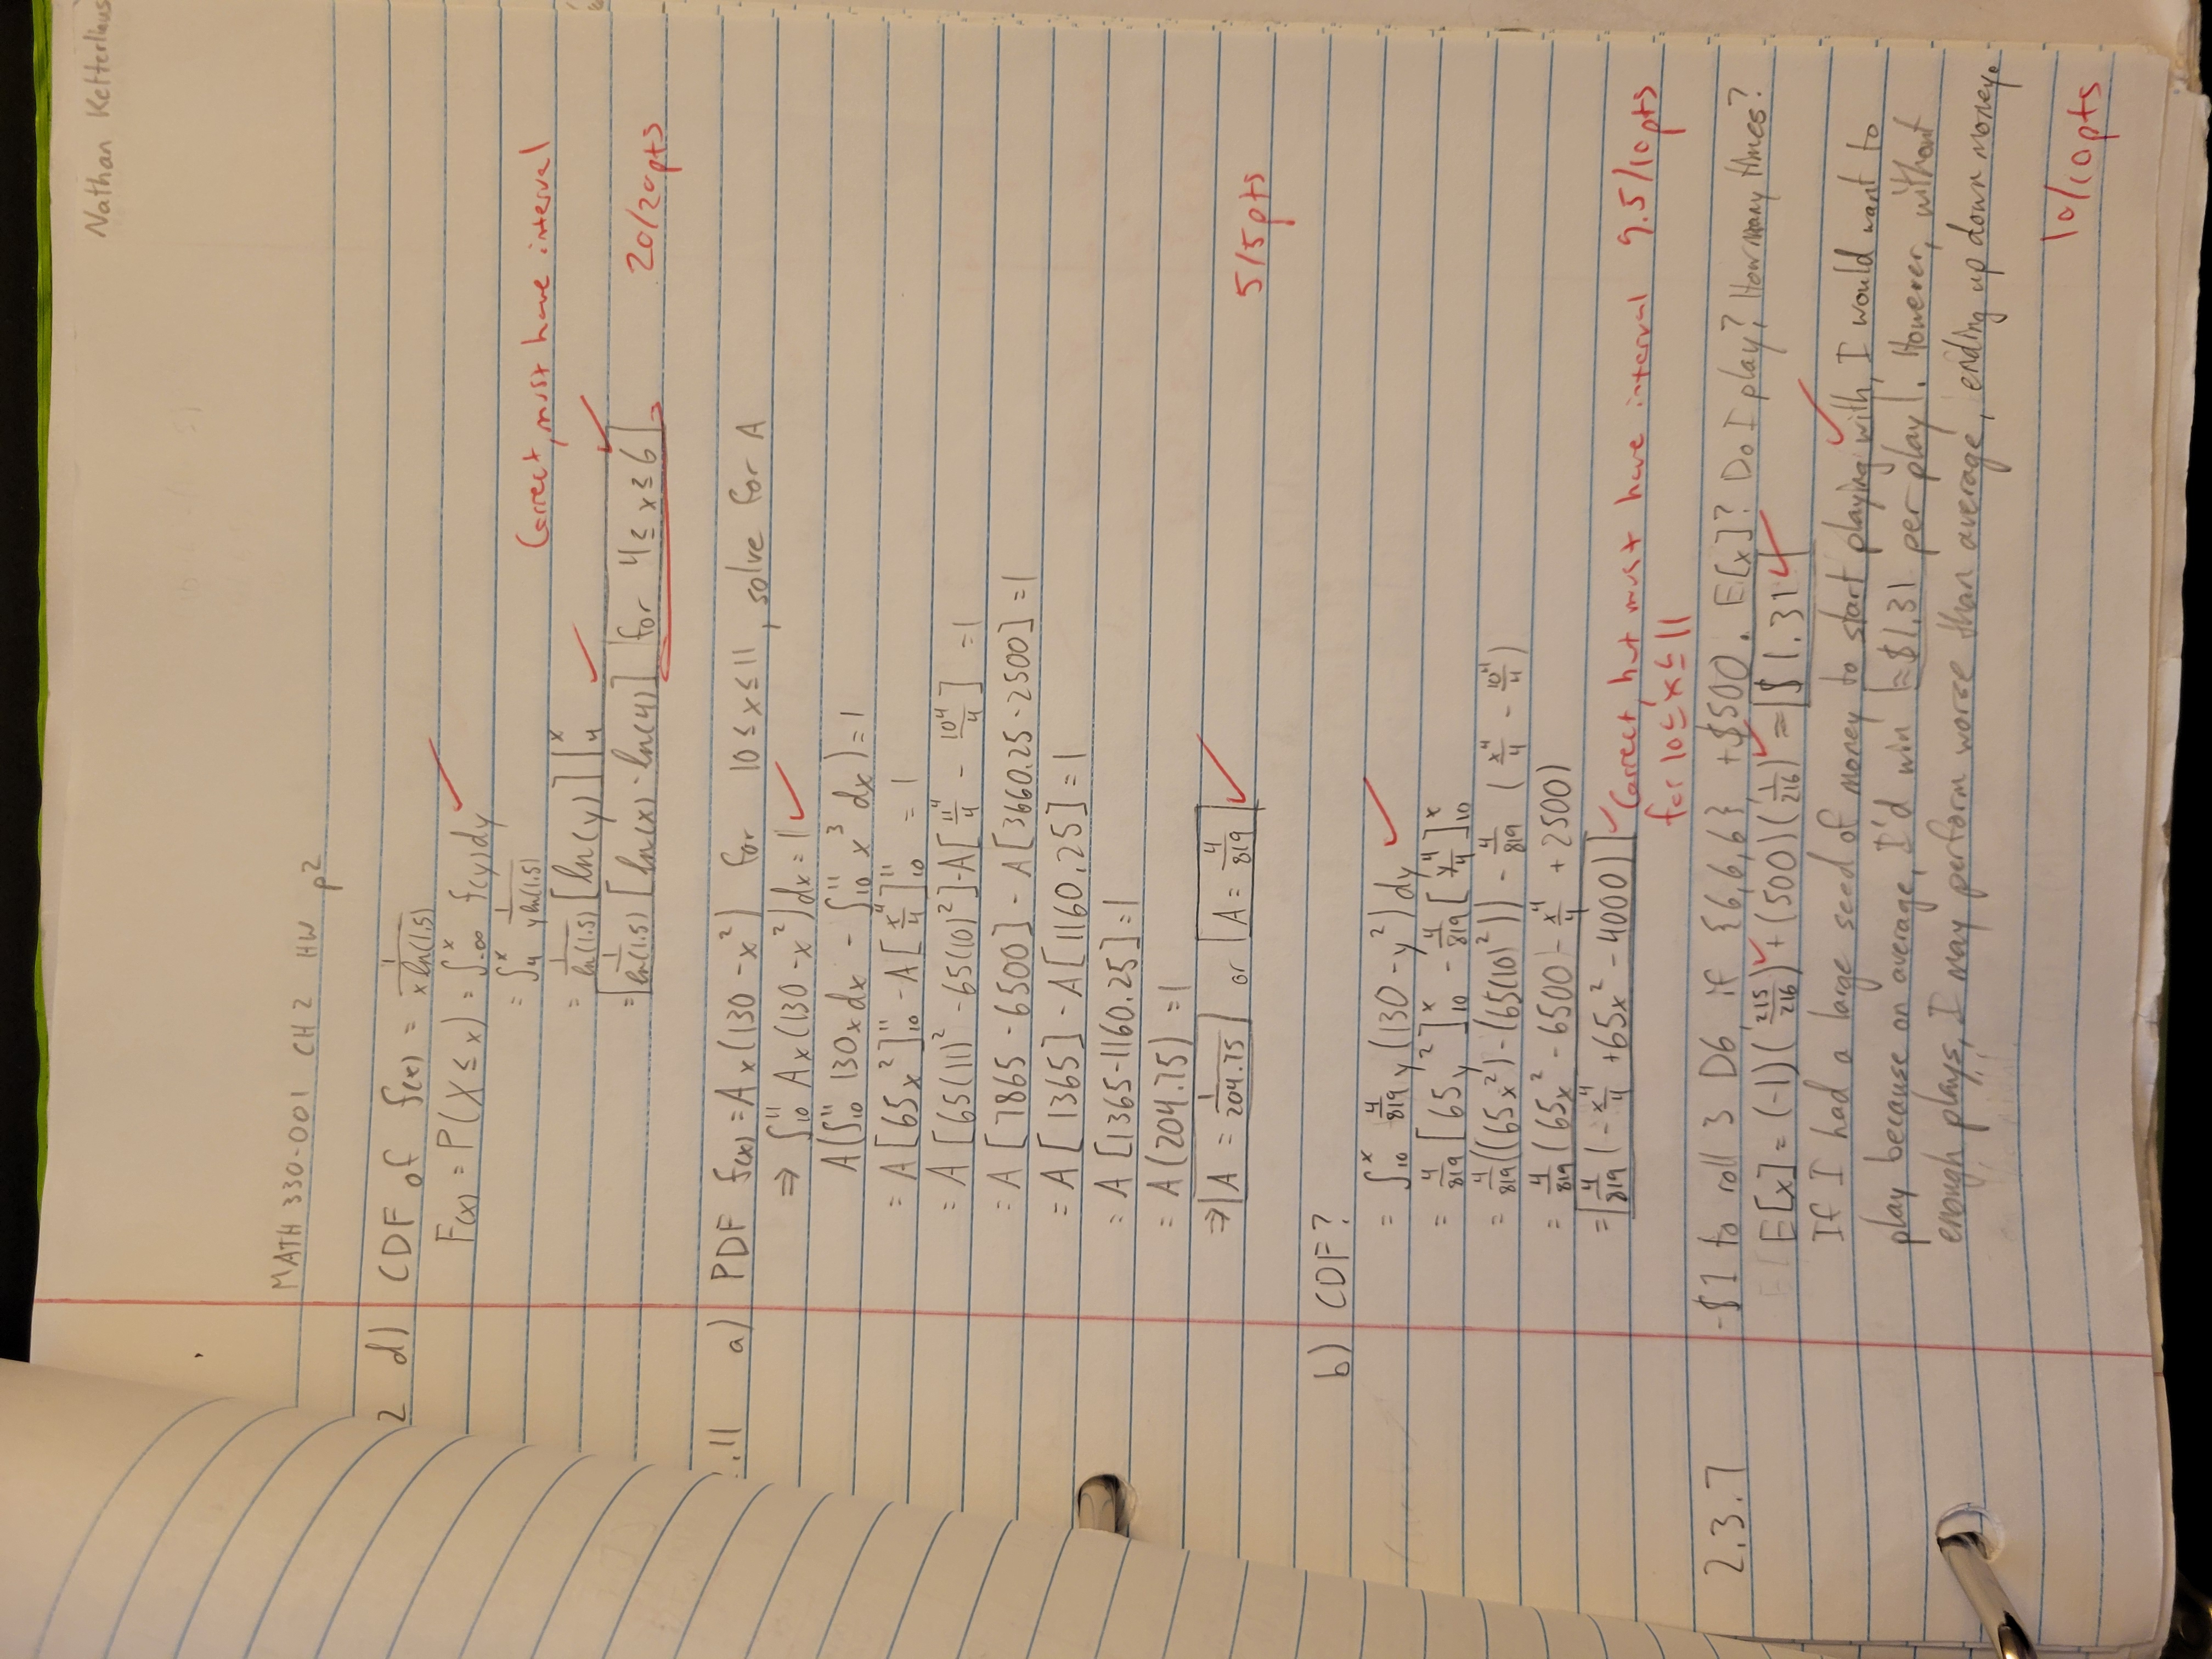 Nathan Ketterlinus
MATH 330-001 CH 2 HW p2
2 d) CDF of f(x) = 1/(x ln(1.5))
F(x) = P(X ≤ x) = ∫_{-∞}^{x} f(y)dy
= ∫_4^x 1/(y ln(1.5))
Correct, must have interval
= 1/ln(1.5) [ln(y)] |_4^x
= 1/ln(1.5) [ln(x) - ln(4)] for 4 ≤ x ≤ 6
20/20pts
.11 a) PDF f(x) = Ax(130 - x²) for 10 ≤ x ≤ 11, solve for A
⇒ ∫_10^11 Ax(130 - x²)dx = 1
A(∫_10^11 130x dx - ∫_10^11 x³ dx) = 1
= A[65x²]_10^11 - A[x⁴/4]_10^11 = 1
= A[65(11)² - 65(10)²] - A[11⁴/4 - 10⁴/4] = 1
= A[7865 - 6500] - A[3660.25 - 2500] = 1
= A[1365] - A[1160.25] = 1
= A[1365 - 1160.25] = 1
= A(204.75) = 1
⇒ A = 1/204.75 or A = 4/819
5/5pts
b) CDF?
= ∫_10^x 4/819 y(130 - y²)dy
= 4/819 [65y²]_10^x - 4/819 [y⁴/4]_10^x
= 4/819 ((65x²) - (65(10)²)) - 4/819 (x⁴/4 - 10⁴/4)
= 4/819 (65x² - 6500 - x⁴/4 + 2500)
= 4/819 (-x⁴/4 + 65x² - 4000)
Correct, but must have interval 9.5/10pts
for 10 ≤ x ≤ 11
2.3.7 -$1 to roll 3 D6, if {6,6,6}, +$500. E[x]? Do I play? How many times?
E[x] = (-1)(215/216) + (500)(1/216) ≈ $1.31
If I had a large seed of money to start playing with, I would want to
play because on average, I'd win ≈$1.31 per play. However, without
enough plays, I may perform worse than average, ending up down money.
10/10pts